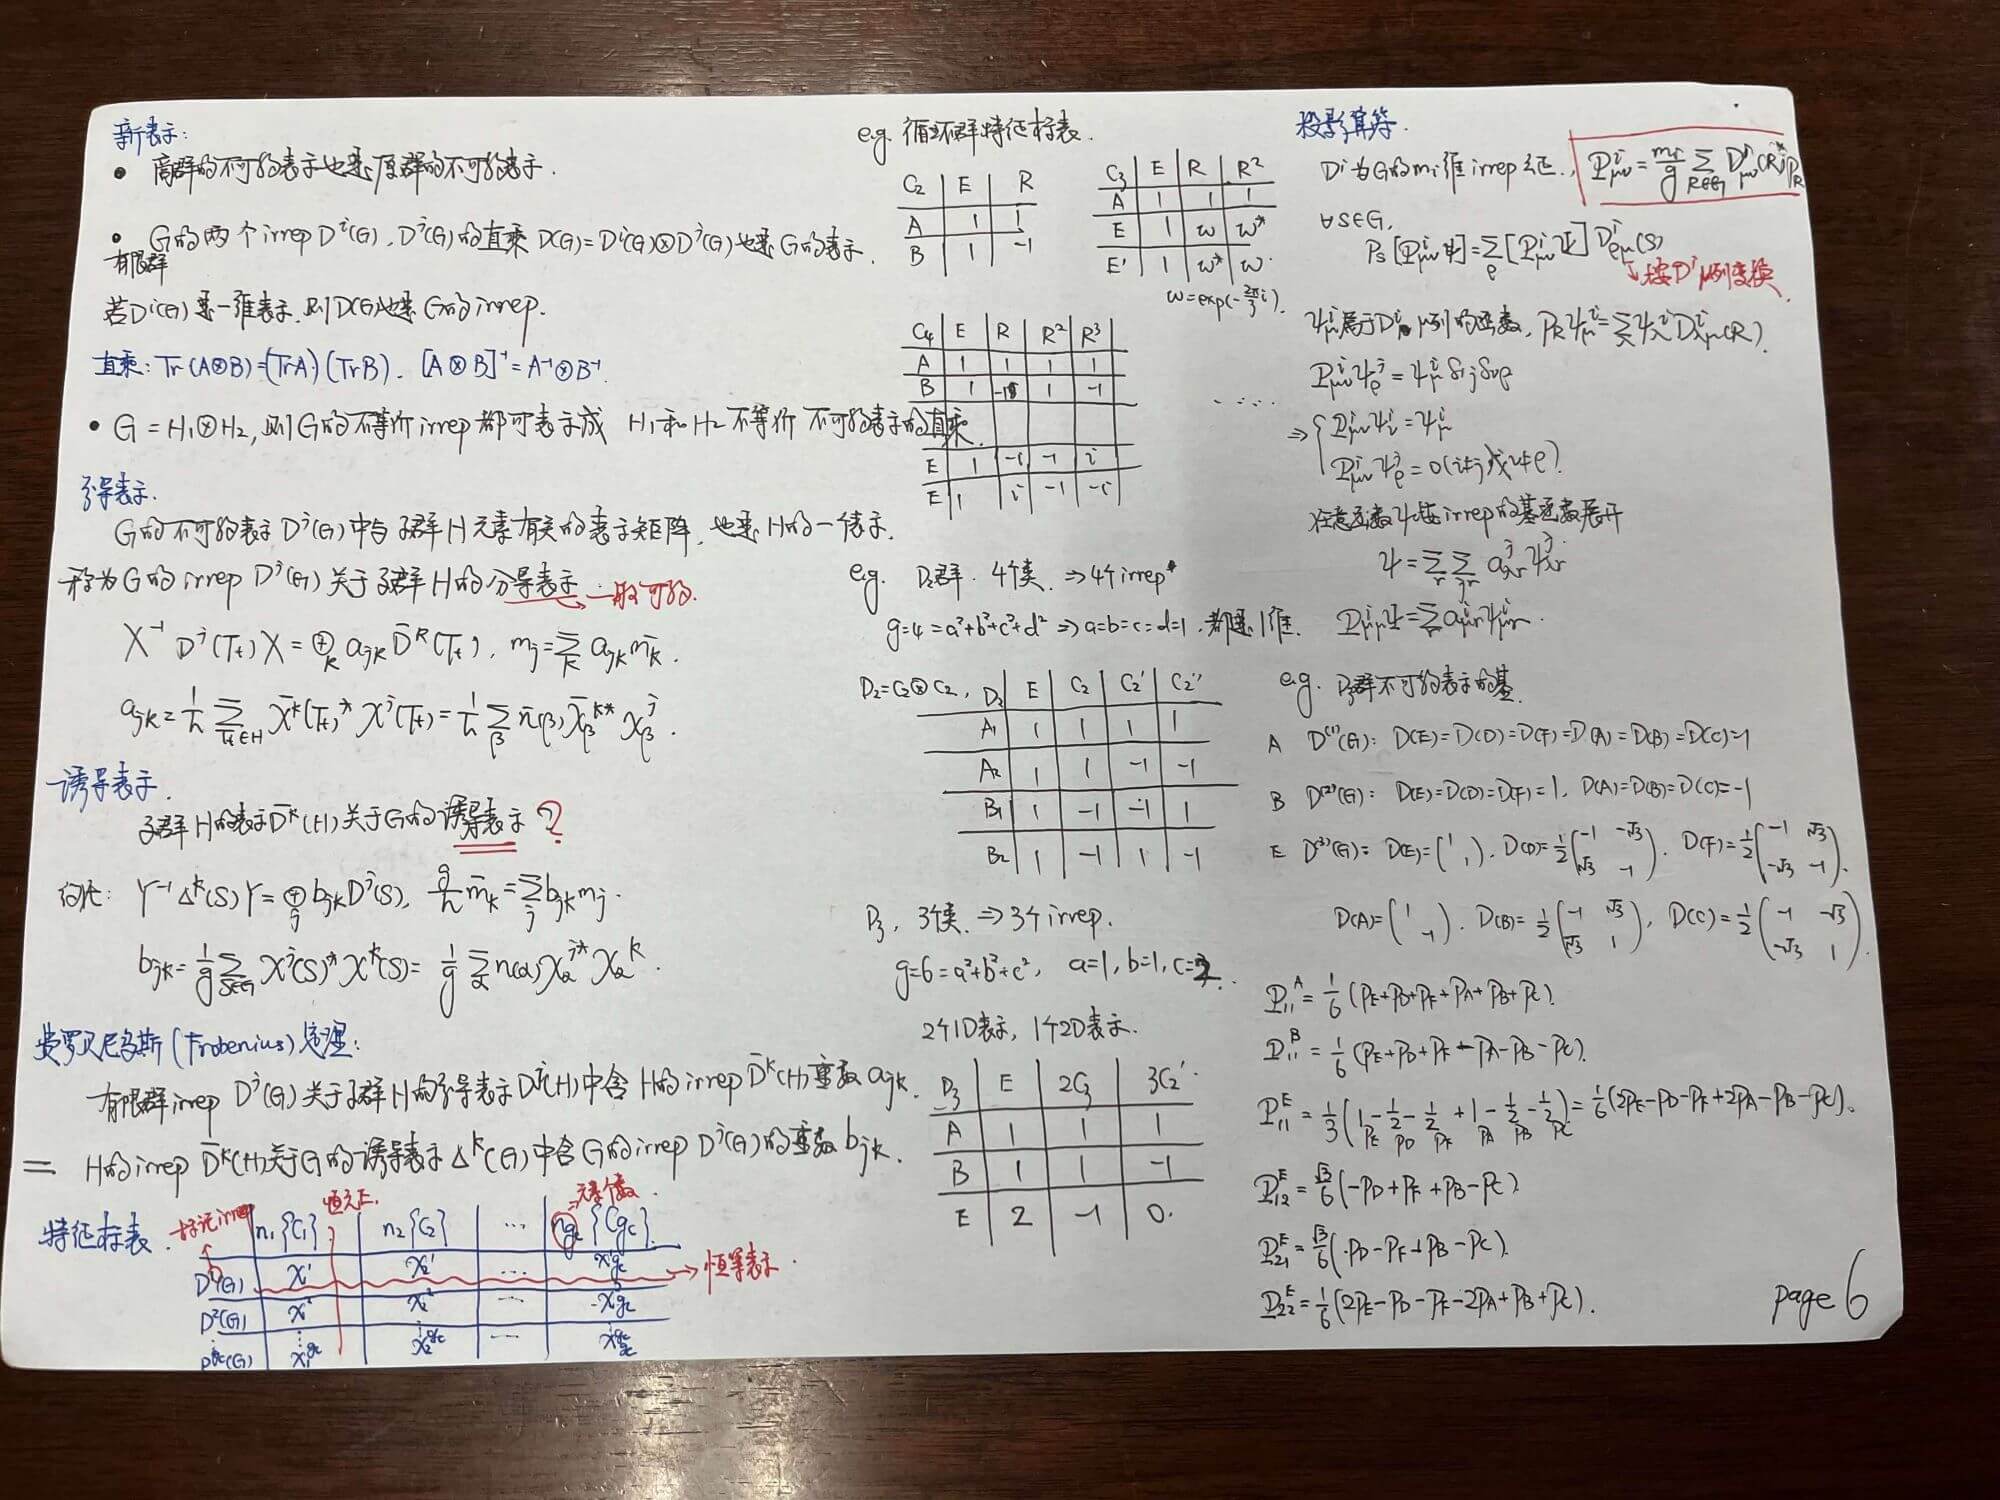 新表示:
• 商群的不可约表示也是原群的不可约表示.
• G的两个irrep Dⁱ(G), Dʲ(G)的直乘 D(G)=Dⁱ(G)⊗Dʲ(G)也是G的表示.
有限群
若Dⁱ(G)是一维表示,则D(G)也是G的irrep.
直乘: Tr(A⊗B)=(TrA)·(TrB). [A⊗B]⁻¹=A⁻¹⊗B⁻¹.
• G=H₁⊗H₂, 则G的不等价irrep都可表示成 H₁和H₂不等价 不可约表示的直乘.
分导表示.
G的不可约表示Dʲ(G)中与子群H元素有关的表示矩阵,也是H的一个表示.
称为G的irrep Dʲ(G)关于子群H的分导表示 → 一般可约.
X⁻¹ Dʲ(Tₜ) X = ⊕ₖ aⱼₖ D̄ᵏ(Tₜ), mⱼ=∑ₖ aⱼₖ m̄ₖ.
aⱼₖ = 1/h ∑_{Tₜ∈H} χ̄ᵏ(Tₜ)* χʲ(Tₜ) = 1/h ∑_β n̄(β) χ̄_β^{k*} χ_β^j
诱导表示.
子群H的表示D̄ᵏ(H)关于G的诱导表示 ?
约化: Y⁻¹ Δᵏ(S) Y = ⊕ⱼ bⱼₖ Dʲ(S), g/h m̄ₖ = ∑ⱼ bⱼₖ mⱼ.
bⱼₖ = 1/g ∑_{S∈G} χʲ(S)* χᵏ(S) = 1/g ∑_α n(α) χ_α^{j*} χ_α^k.
费罗贝尼乌斯(Frobenius)定理:
有限群irrep Dʲ(G)关于子群H的分导表示Dʲ(H)中含 H的irrep D̄ᵏ(H)重数aⱼₖ.
= H的irrep D̄ᵏ(H)关于G的诱导表示Δᵏ(G)中含G的irrep Dʲ(G)的重数bⱼₖ.
特征标表.
标记irrep 恒为正. → 元素个数.
n₁{C₁} n₂{C₂} ... n_{gc}{C_{gc}}
D¹(G) χ₁¹ χ₂¹ ... χ¹_{gc} → 恒等表示.
D²(G) χ₁² χ₂² ... χ²_{gc}
⋮ ⋮ ⋮ ⋮
D^{gc}(G) χ₁^{gc} χ₂^{gc} ... χ_{gc}^{gc}
e.g. 循环群特征标表.
C₂ E R
A 1 1
B 1 -1
C₃ E R R²
A 1 1 1
E 1 ω ω*
E' 1 ω* ω.
ω=exp(-2π/3 i).
C₄ E R R² R³
A 1 1 1 1
B 1 -1 1 -1
E 1 -i -1 i
E 1 i -1 -i
.....
e.g. D₂群. 4个类. ⇒4个irrep
g=4=a²+b²+c²+d² ⇒a=b=c=d=1, 都是1维.
D₂=C₂⊗C₂,
D₂ E C₂ C₂' C₂''
A₁ 1 1 1 1
A₂ 1 1 -1 -1
B₁ 1 -1 -1 1
B₂ 1 -1 1 -1
D₃, 3个类. ⇒3个irrep.
g=6=a²+b²+c², a=1, b=1, c=2.
2个1D表示, 1个2D表示.
D₃ E 2C₃ 3C₂'.
A 1 1 1
B 1 1 -1
E 2 -1 0.
投影算符.
Dⁱ为G的mᵢ维irrep, P^i_{μν} = mᵢ/g ∑_{R∈G} D^i_{μν}(R)* P_R
∀S∈G,
P_S[P^i_{μν}ψ]=∑_ρ[P^i_{ρν}ψ] D^i_{ρμ}(S)
↳ 按Dⁱ μ列变换.
ψ^i_μ 属于Dⁱ μ列的函数, P_R ψ^i_μ = ∑_λ ψ^i_λ D^i_{λμ}(R).
P^i_{μν} ψ^j_ρ = ψ^i_μ δᵢⱼ δ_{νρ}
⇒ { P^i_{μν} ψ^i_ν = ψ^i_μ
P^i_{μν} ψ^j_ρ = 0 (i≠j 或 ν≠ρ).
任意函数ψ按irrep的基函数展开
P^i_{μμ}ψ=∑_r a^i_{μr} ψ^i_{μr}.
e.g. D₃群不可约表示的基.
A D⁽¹⁾(G): D(E)=D(D)=D(F)=D(A)=D(B)=D(C)=1
B D⁽²⁾(G): D(E)=D(D)=D(F)=1, D(A)=D(B)=D(C)=-1
E D⁽³⁾(G): D(E)=(1 ; 1). D(D)=1/2(-1 -√3 ; √3 -1). D(F)=1/2(-1 √3 ; -√3 -1).
D(A)=(1 ; -1). D(B)=1/2(-1 √3 ; √3 1), D(C)=1/2(-1 -√3 ; -√3 1).
P₁₁ᴬ=1/6(P_E+P_D+P_F+P_A+P_B+P_C).
P₁₁ᴮ=1/6(P_E+P_D+P_F-P_A-P_B-P_C).
P₁₁ᴱ=1/3(1 -1/2 -1/2 +1 -1/2 -1/2)=1/6(2P_E-P_D-P_F+2P_A-P_B-P_C).
P_E P_D P_F P_A P_B P_C
P₁₂ᴱ=√3/6(-P_D+P_F+P_B-P_C).
P₂₁ᴱ=√3/6(P_D-P_F+P_B-P_C).
P₂₂ᴱ=1/6(2P_E-P_D-P_F-2P_A+P_B+P_C).
page 6